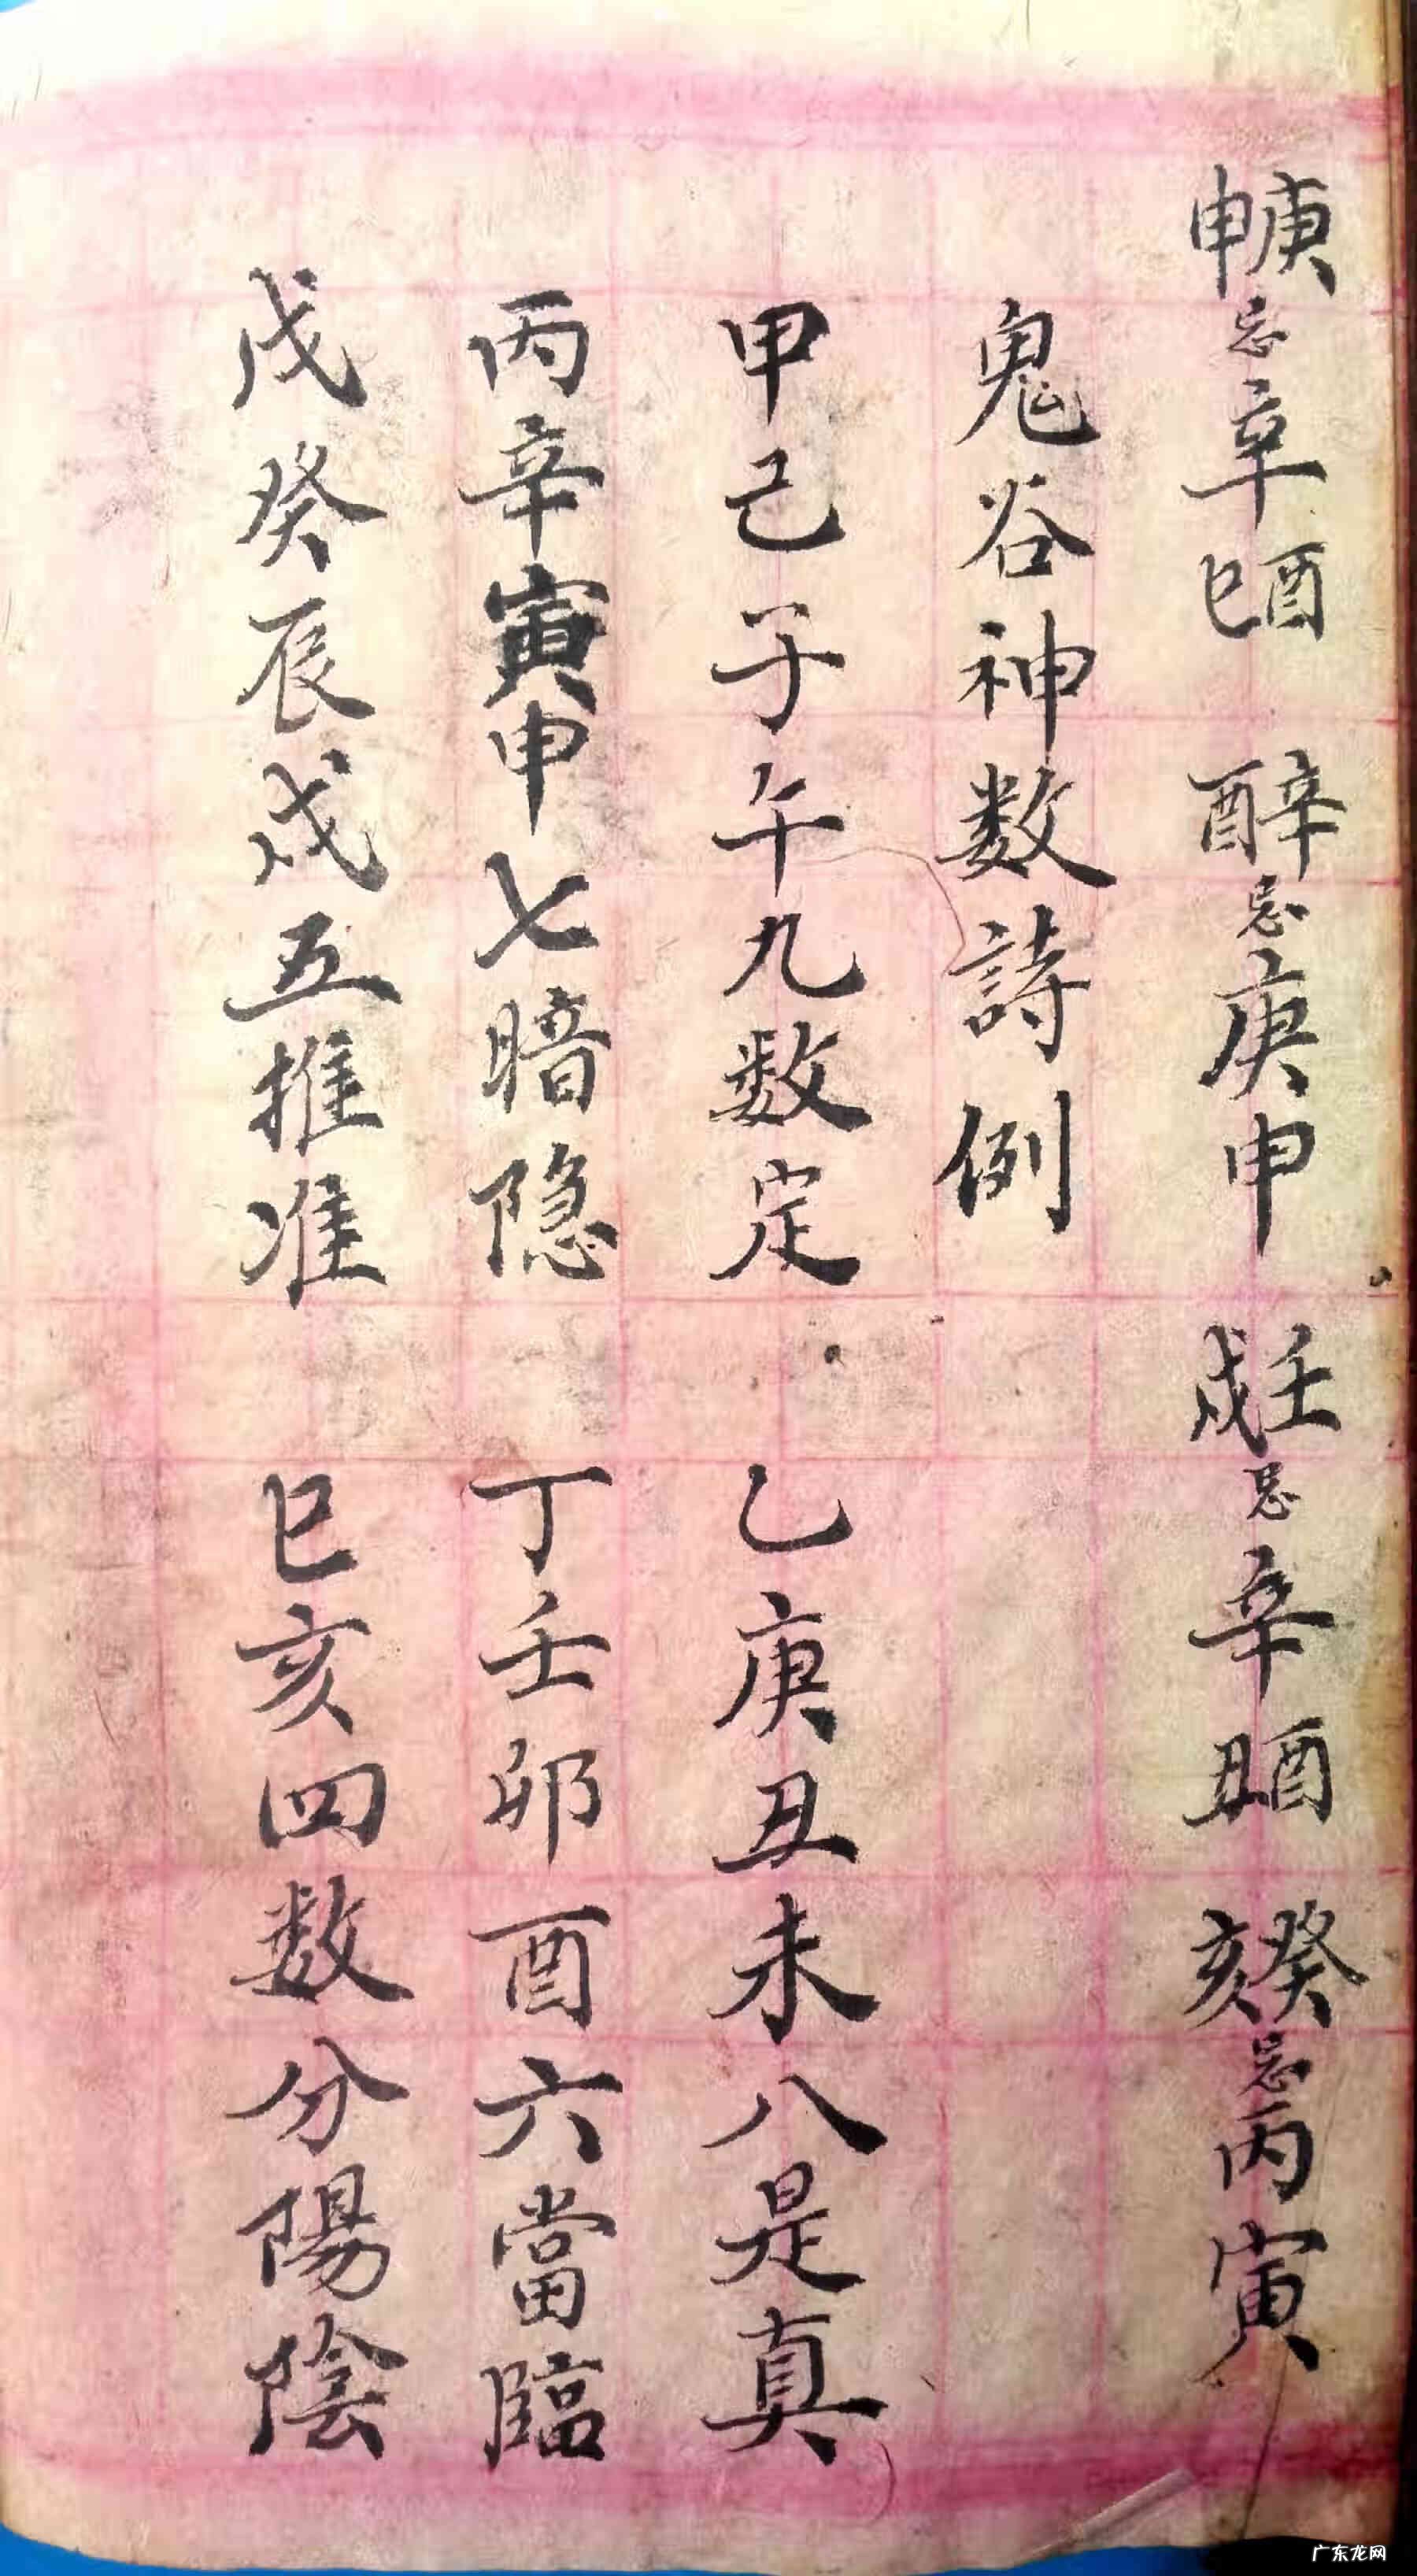 庚申忌辛酉巳 辛酉忌庚申 壬戌忌辛酉丑 癸亥忌丙寅
鬼谷神数詩例
甲己子午九数定 乙庚丑未八是真
丙辛寅申七暗隐 丁壬卯酉六當臨
戊癸辰戌五推准 巳亥四数分陽陰
广东龙网